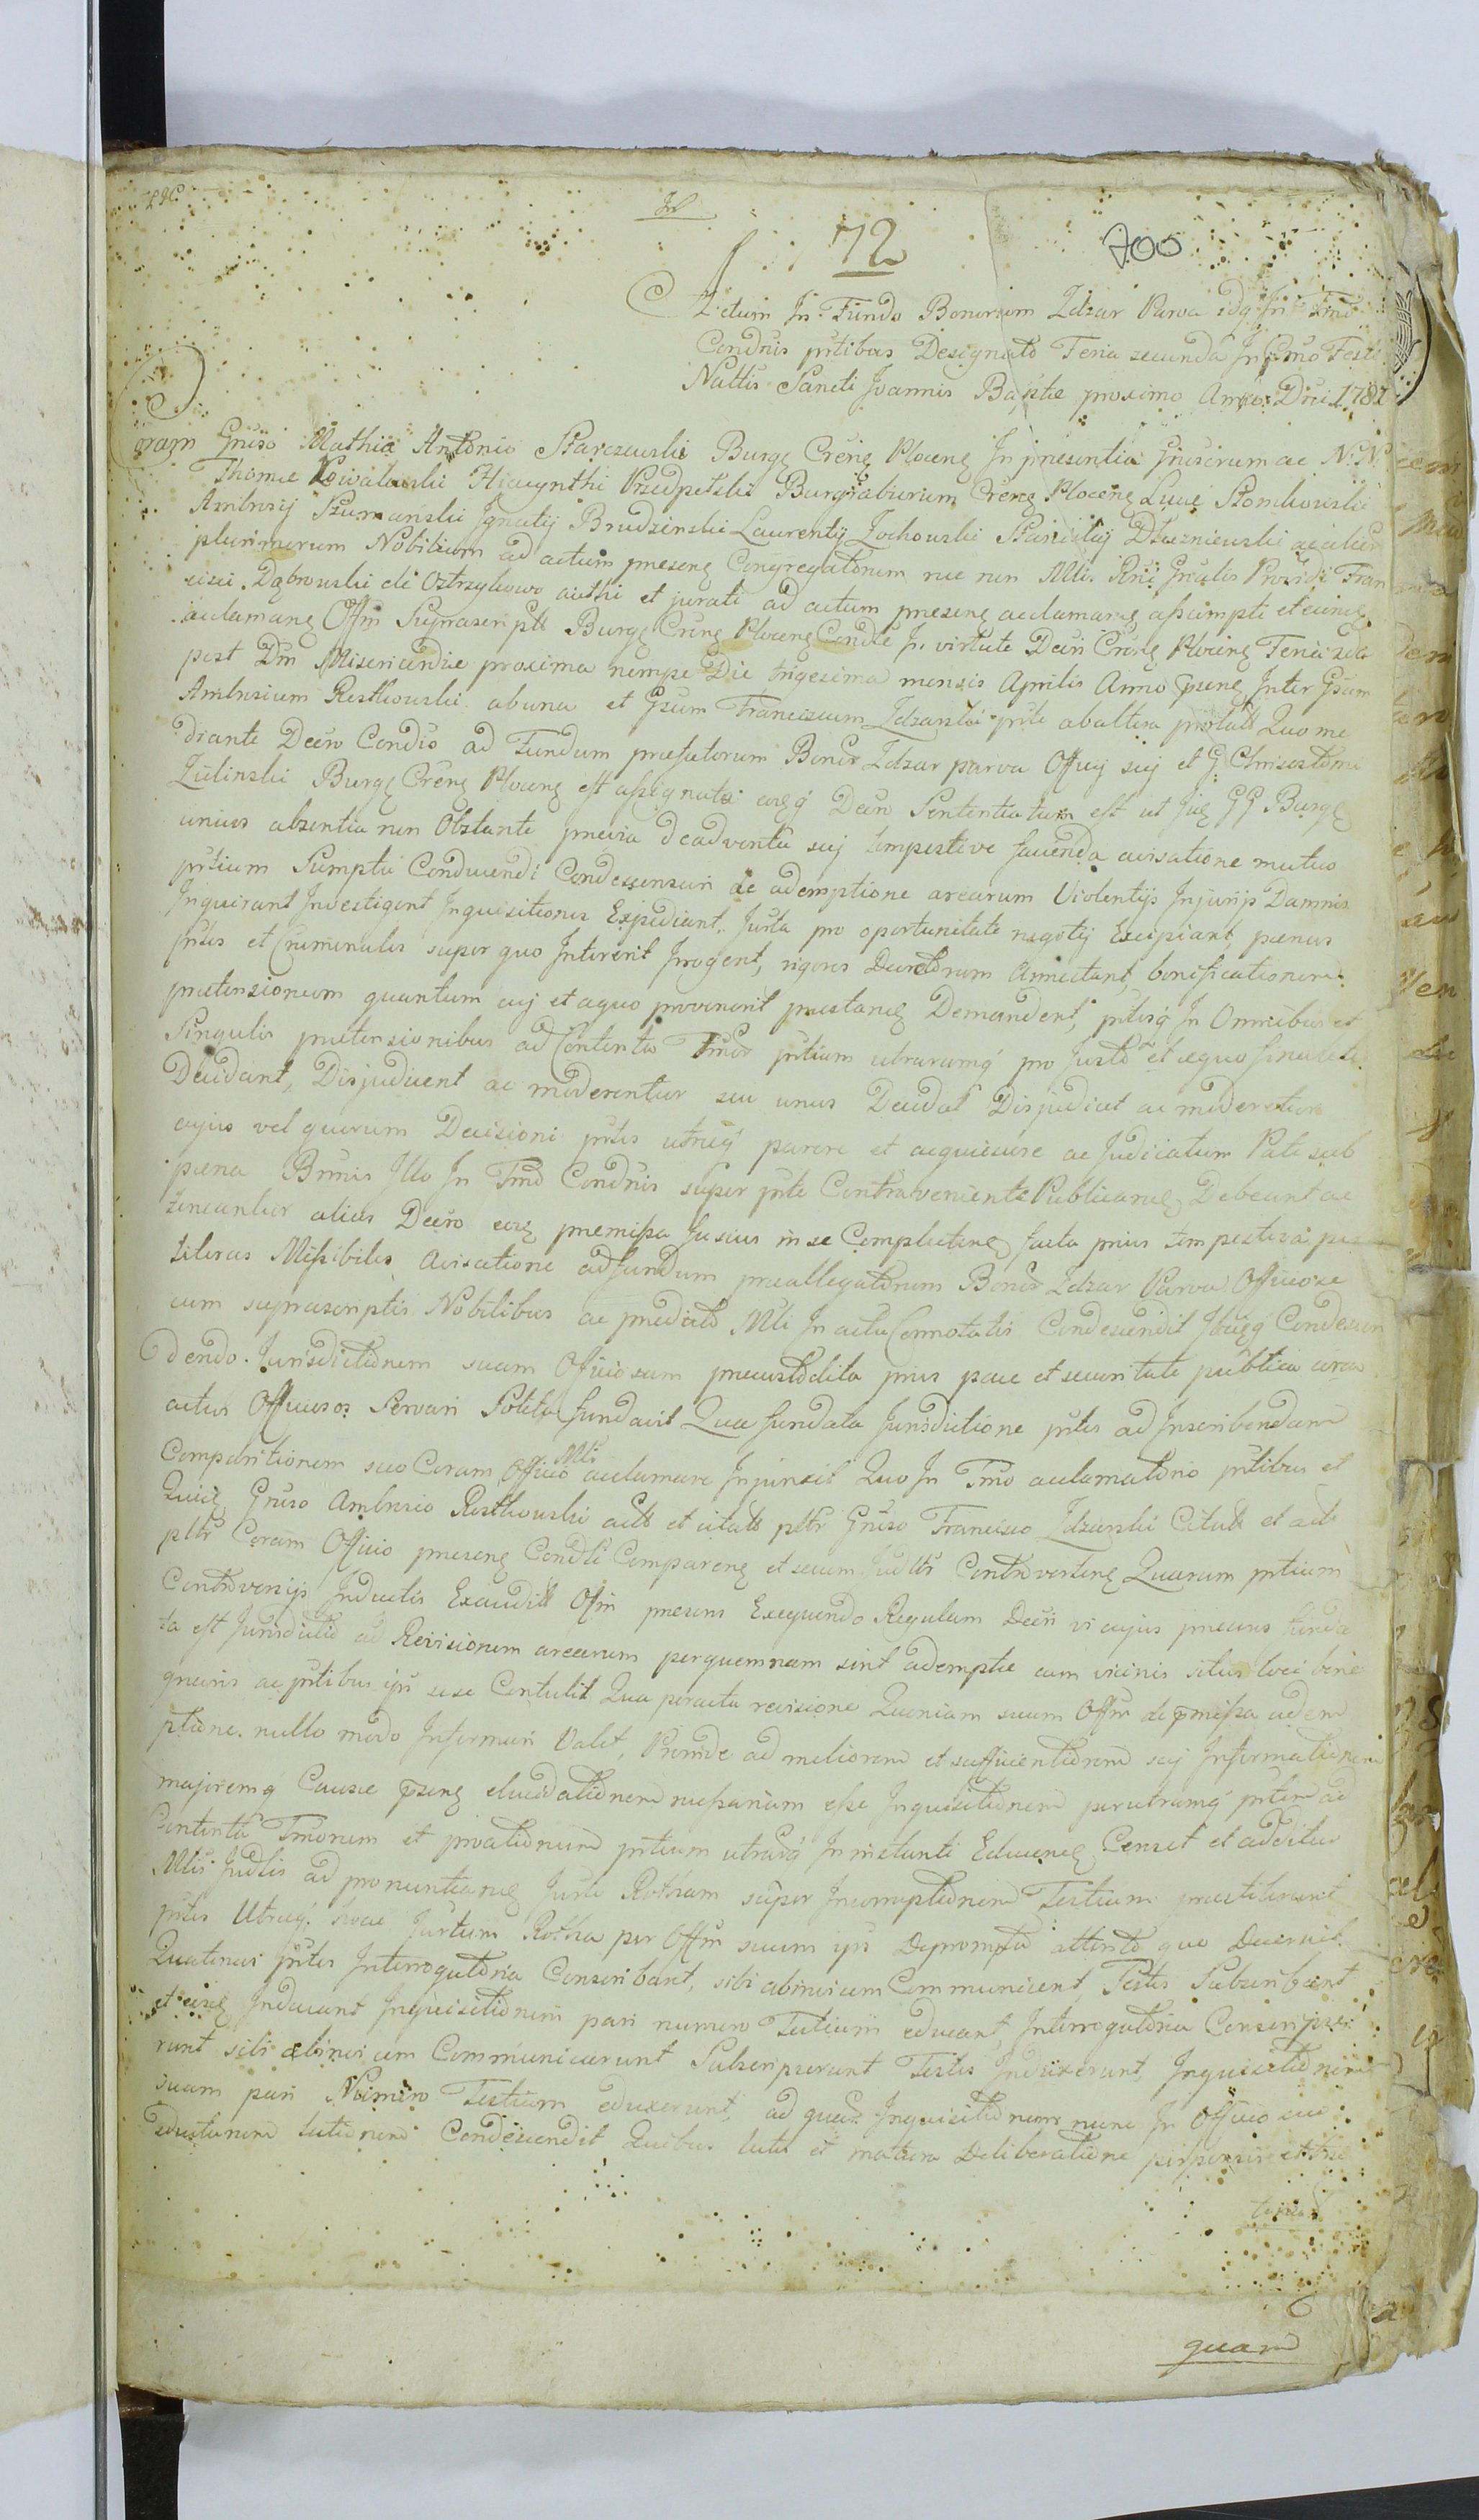 72
700
Actum In Fundo Bonorum Zdzar Parva idq In Tmo
Condnis ptibus Designato Feria secunda In Cmo Festi
Nattis Sancti Joannis Baptae proximo Anno Dni 1781
Coram Gnoso Mathia Antonio Starczewski Burgo Crens Plocens In presentia Gnosorum ac N: N:
Thomae Kowalewski Hiacynthi Przedpełski Burgrabiorum Crens Plocens Lucae Słomkowski
Ambrosij Szumański Ignatij Brudzinski Laurentij Zochowski Stanislaj Dłuzniewski ac alior
plurimorum Nobilium ad actum presens Congregatorum nec non Mlis Rni Gnralis Providi Fran
cisci Dąbrowski de Ostrzykowo authi et jurati ad actum presens acclamans assumpti et eumq
acclamans Offm Suprascriptt Burgo Crens Plocens Condle In virtute Decri Crens Plocens Feria 2da
post Dm Misericordiae proxima nempe Die trigesima mensis Aprilis Anno psens Inter Gsum
Ambrosium Rostkowski ab una et Gsum Franciscum Zdzarski pte ab altera ptes latt Quo me
diante Decro Condlo ad Fundum praefatorum Bonor Zdzar parva Officij sui et G Chrisostomi
Zielinski Burgo Crens Plocens est assignata eoq Decro Sententiatum est ut Jus GG Burgo
unius absentia non Obstante previa de adventu suj tempestive facienda avisatione mutuo
ptium Sumptu Conducendi Condescensuri de ademptione arearum Violentijs Injurijs Damnis
Inquirant Investigent Inquisitiones Expediant, Jurta pro oportunitate negotij Excipiant, paenas
ptes et Criminales super quo Intererit Irrogent, rigores Decretorum Annectant, bonificationem
pretensionum quantum cuj et aquo provenerit prestans Demandent, ptesq In Omnibus et
Singulis pretensionibus ad Contenta Tmor ptium utrarumq pro justo et aequo finaliter
Decidant, Disjudicent ac moderentur seu unus Decidat Disjudicet ac moderetur
cujus vel quorum Decisioni ptes utraeq parere et acquiescere ac Judicatum Pati sub
paena Bnnis Illo In Tmo Condnis super pte Contraveniente Publicans Debeant ac
teneantur alias Decro eorum premissa fusius in se Complectens facta prius tempestiva per
literas Missibiles Avisatione ad fundum praeallegatorum Bonor Zdzar Parva Officiose
cum suprascriptis Nobilibus ac predicto Mli In actu Connotatis Condescendit Ibiq Condescen
dendo Jurisdictionem suam Officiosam precustodita prius pace et securitate publica circa
actus Officiosos Servari Solita fundavit Qua fundata Jurisdictione ptes ad Inscribendam
Comparitionem suo Coram Officio Mli acclamare Injunxit Quo In Tmo acclamatorio ptibus et
Quidem Gnoso Ambrosio Rostkowski actt et citatt pttr Gnoso Francisco Zdzarski Citatt et actt
pttr Coram Officio presens Condli Comparens et secum Judltr Controvertens Quarum ptium
Controversijs Inductis Exauditt Offm presens Exequendo Regulam Decri vi cujus presens funda
ta est Jurisdictio ad Revisionem arearum per quemnam sint ademptae cum vicinis situs loci bene
gnaris ac ptibus ijs sese Contulit Qua peracta revisione Quoniam suum Offm de pmissa adem
ptione nullo modo Informari Valet, Proinde ad meliorem et sufficientiorem suj Informationem
majoremq Causae psens elucidationem necssariam esse Inquisitionem per utramq ptem ad
Contenta Tmorum et probationum ptium utrarq In instanti Educens Censet et additus
Mlis Judlis ad pronuntians Jurti Rotham super Incorruptionem Testium prestiterunt
ptes Utraeq hocce Jurtum Rotha per Offm suum ijs Deprompta attento quo Decrevit
Quatenus ptes Interrogatoria Conscribant, sibi abinvicem Communicent, Testes Subscribant
et eosq Inducant Inquisitionem pari numero Testium educant, Interrogatoria Conscripse
runt sibi abinvicem Communicarunt Subscripserunt Testes Induxerunt, Inquisitionem
suam pari Numero Testium eduxerunt, ad quar Inquisitionum nunc In Officio suo
eductarum lectionem Condescendit Quibus lectis et matura Deliberatione perpensis
quam